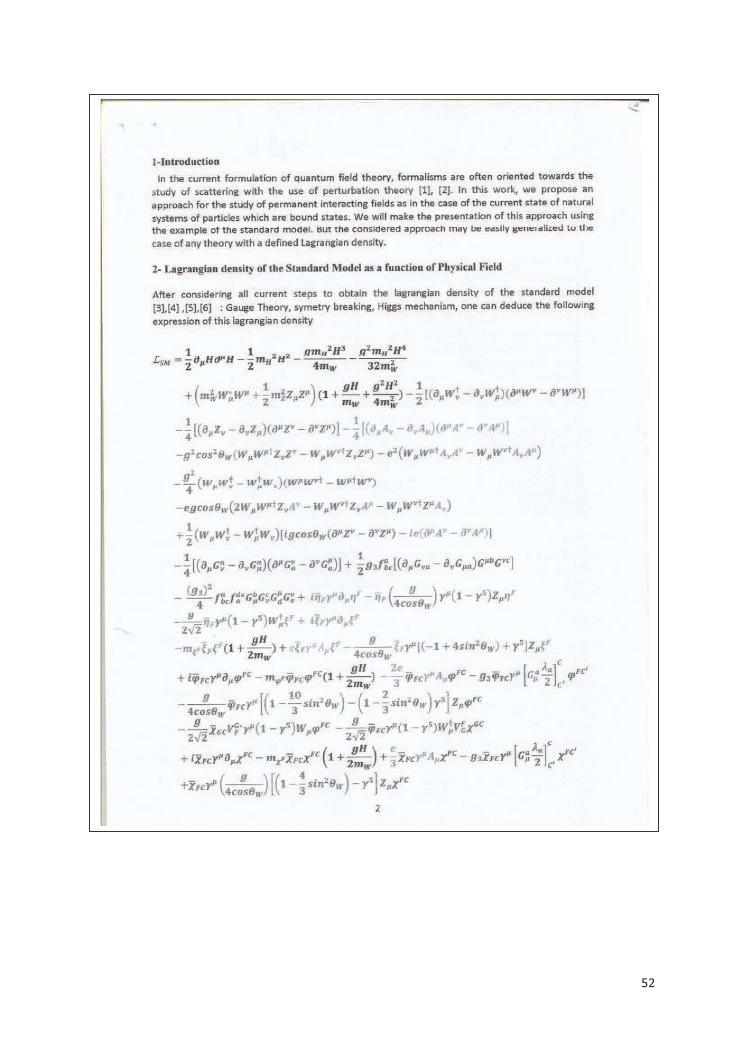 1-Introduction
In the current formulation of quantum field theory, formalisms are often oriented towards the
study of scattering with the use of perturbation theory [1], [2]. In this work, we propose an
approach for the study of permanent interacting fields as in the case of the current state of natural
systems of particles which are bound states. We will make the presentation of this approach using
the example of the standard model. But the considered approach may be easily generalized to the
case of any theory with a defined Lagrangian density.
2- Lagrangian density of the Standard Model as a function of Physical Field
After considering all current steps to obtain the lagrangian density of the standard model
[3],[4] ,[5],[6] : Gauge Theory, symetry breaking, Higgs mechanism, one can deduce the following
expression of this lagrangian density
ℒ_SM = 1/2 ∂_μH∂^μH − 1/2 m_H²H² − gm_H²H³/4m_W − g²m_H²H⁴/32m_W²
+(m_W²W_μ^+W^μ + 1/2 m_Z²Z_μZ^μ)(1 + gH/m_W + g²H²/4m_W²) − 1/2[(∂_μW_ν^† − ∂_νW_μ^†)(∂^μW^ν − ∂^νW^μ)]
−1/4[(∂_μZ_ν − ∂_νZ_μ)(∂^μZ^ν − ∂^νZ^μ)] − 1/4[(∂_μA_ν − ∂_νA_μ)(∂^μA^ν − ∂^νA^μ)]
−g²cos²θ_W(W_μW^μ†Z_νZ^ν − W_μW^ν†Z_νZ^μ) − e²(W_μW^μ†A_νA^ν − W_μW^ν†A_νA^μ)
−g²/2 (W_μW_ν^† − W_μ^†W_ν)(W^μW^ν† − W^μ†W^ν)
−egcosθ_W(2W_μW^μ†Z_νA^ν − W_μW^ν†Z_νA^μ − W_μW^ν†Z^μA_ν)
+1/2(W_μW_ν^† − W_μ^†W_ν)[igcosθ_W(∂^μZ^ν − ∂^νZ^μ) − ie(∂^μA^ν − ∂^νA^μ)]
−1/4[(∂_μG_ν^a − ∂_νG_μ^a)(∂^μG_a^ν − ∂^νG_a^μ)] + 1/2 g₃f_bc^a[(∂_μG_νa − ∂_νG_μa)G^μbG^νc]
− (g₃)²/4 f_bc^a f_a^de G_μ^bG_ν^cG_d^μG_e^ν + iη̅_Fγ^μ∂_μη^F − η̅_F(g/4cosθ_W)γ^μ(1 − γ⁵)Z_μη^F
−g/2√2 η̅_Fγ^μ(1 − γ⁵)W_μ^†ξ^F + iξ̅_Fγ^μ∂_μξ^F
−m_ξ^F ξ̅_Fξ^F(1 + gH/2m_W) + eξ̅_Fγ^μA_μξ^F − g/4cosθ_W ξ̅_Fγ^μ[(−1 + 4sin²θ_W) + γ⁵]Z_μξ^F
+ iφ̅_FCγ^μ∂_μφ^FC − m_φ^F φ̅_FCφ^FC(1 + gH/2m_W) − 2e/3 φ̅_FCγ^μA_μφ^FC − g₃φ̅_FCγ^μ[G_μ^a λ_a/2]^C_C' φ^FC'
−g/4cosθ_W φ̅_FCγ^μ[(1 − 10/3 sin²θ_W) − (1 − 2/3 sin²θ_W)γ⁵]Z_μφ^FC
−g/2√2 χ̅_GC V_F^G* γ^μ(1 − γ⁵)W_μφ^FC − g/2√2 φ̅_FCγ^μ(1 − γ⁵)W_μ^†V_G^Fχ^GC
+ iχ̅_FCγ^μ∂_μχ^FC − m_χ^F χ̅_FCχ^FC(1 + gH/2m_W) + e/3 χ̅_FCγ^μA_μχ^FC − g₃χ̅_FCγ^μ[G_μ^a λ_a/2]^C_C' χ^FC'
+χ̅_FCγ^μ(g/4cosθ_W)[(1 − 4/3 sin²θ_W) − γ⁵]Z_μχ^FC
2
52